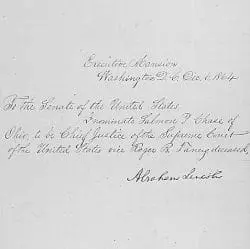 Executive Mansion
Washington D. C. Dec. 6. 1864
To the Senate of the United States.
I nominate Salmon P. Chase of
Ohio, to be Chief Justice of the Supreme Court
of the United States vice Roger B. Taney, deceased,
Abraham Lincoln